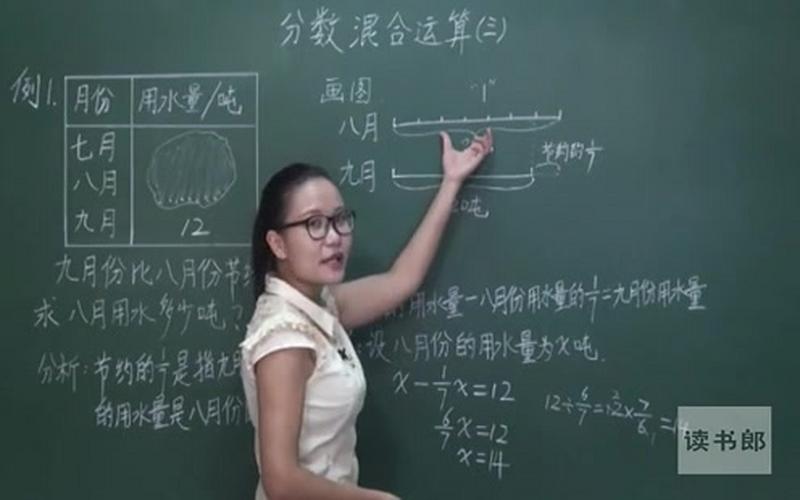 分数混合运算(三)
例1.
月份 用水量/吨
七月
八月
九月 12
画图 "1"
八月
九月 节约的1/7
吨
九月份比八月份节
求八月用水多少吨?
分析:节约的1/7是指九
的用水量是八月份
用水量-八月份用水量的1/7=九月份用水量
设八月份的用水量为x吨.
x-1/7x=12
6/7x=12
x=14
12÷6/7=12×7/6=14
读书郎